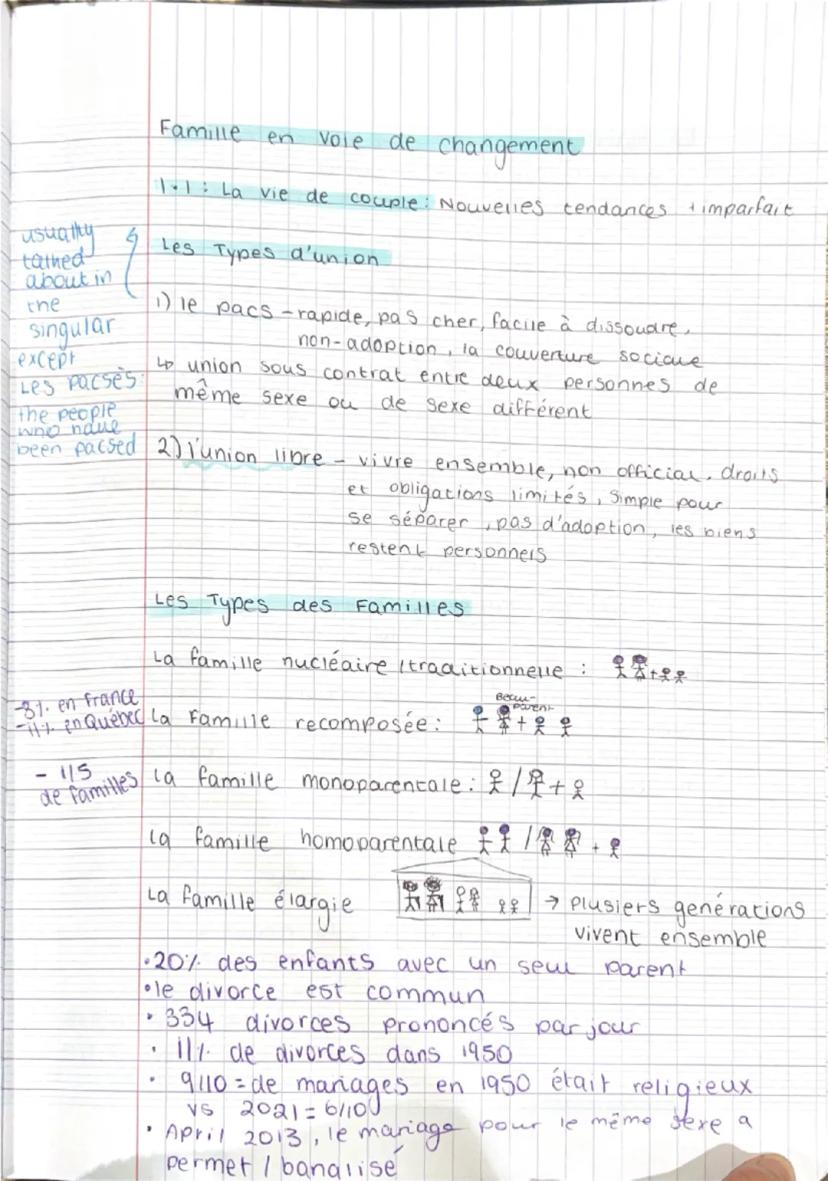 Famille en voie de changement
1.1 : La vie de couple : Nouvelles tendances + imparfait
usually
talked
about in
the
singular
except
Les pacsés:
the people
who have
been pacsed
Les Types d'union
1) le pacs - rapide, pas cher, facile à dissoudre,
non-adoption, la couverture sociale
↳ union sous contrat entre deux personnes de
même sexe ou de sexe différent
2) l'union libre - vivre ensemble, non official, droits
et obligations limités, simple pour
se séparer, pas d'adoption, les biens
restent personnels
Les Types des Familles
La famille nucléaire / traditionnelle :
-8% en france
-11% en Québec
La Famille recomposée :
Beau-
parent
- 1/5
de familles
La famille monoparentale :
La famille homoparentale
La famille élargie → plusiers genérations
vivent ensemble
• 20% des enfants avec un seul parent
• le divorce est commun
• 334 divorces prononcés par jour
• 11% de divorces dans 1950
• 9/10 = de mariages en 1950 était religieux
vs 2021 = 6/10
• April 2013, le mariage pour le même sexe a
permet / banalisé